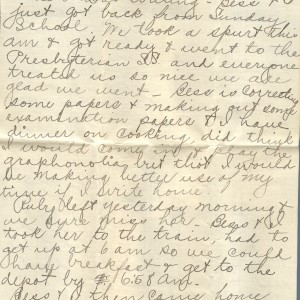 just got back from Sunday
School. We took a spurt this
am & got ready & went to the
Presbyterian SS and everyone
treated us so nice we are
glad we went - Bess is correcting
some papers & making out some
examination papers & I have
dinner on cooking, did think
I would come in & play the
graphonolia but that I would
be making better use of my
time if I write home.
Ruby left yesterday morning &
we sure miss her - Bess & I
took her to the train, had to
get up at 6 am so we could
have breakfast & get to the
depot by 6:58 am.
Bess & I then came home